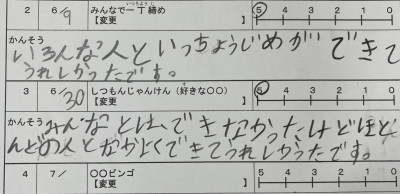 2 6/9 みんなで一丁締め いっちょうじめ 5 4 3 2 1 0
【変更 】
かんそう
いろんな人といっちょうじめができて
うれしかったです。
3 6/30 しつもんじゃんけん（好きな○○） 5 4 3 2 1 0
【変更 】
かんそう
みんなとは、できなかったけどほど
んどの人となかよくできてうれしかったです。
4 7/ ○○ビンゴ 5 4 3 2 1 0
【変更 】